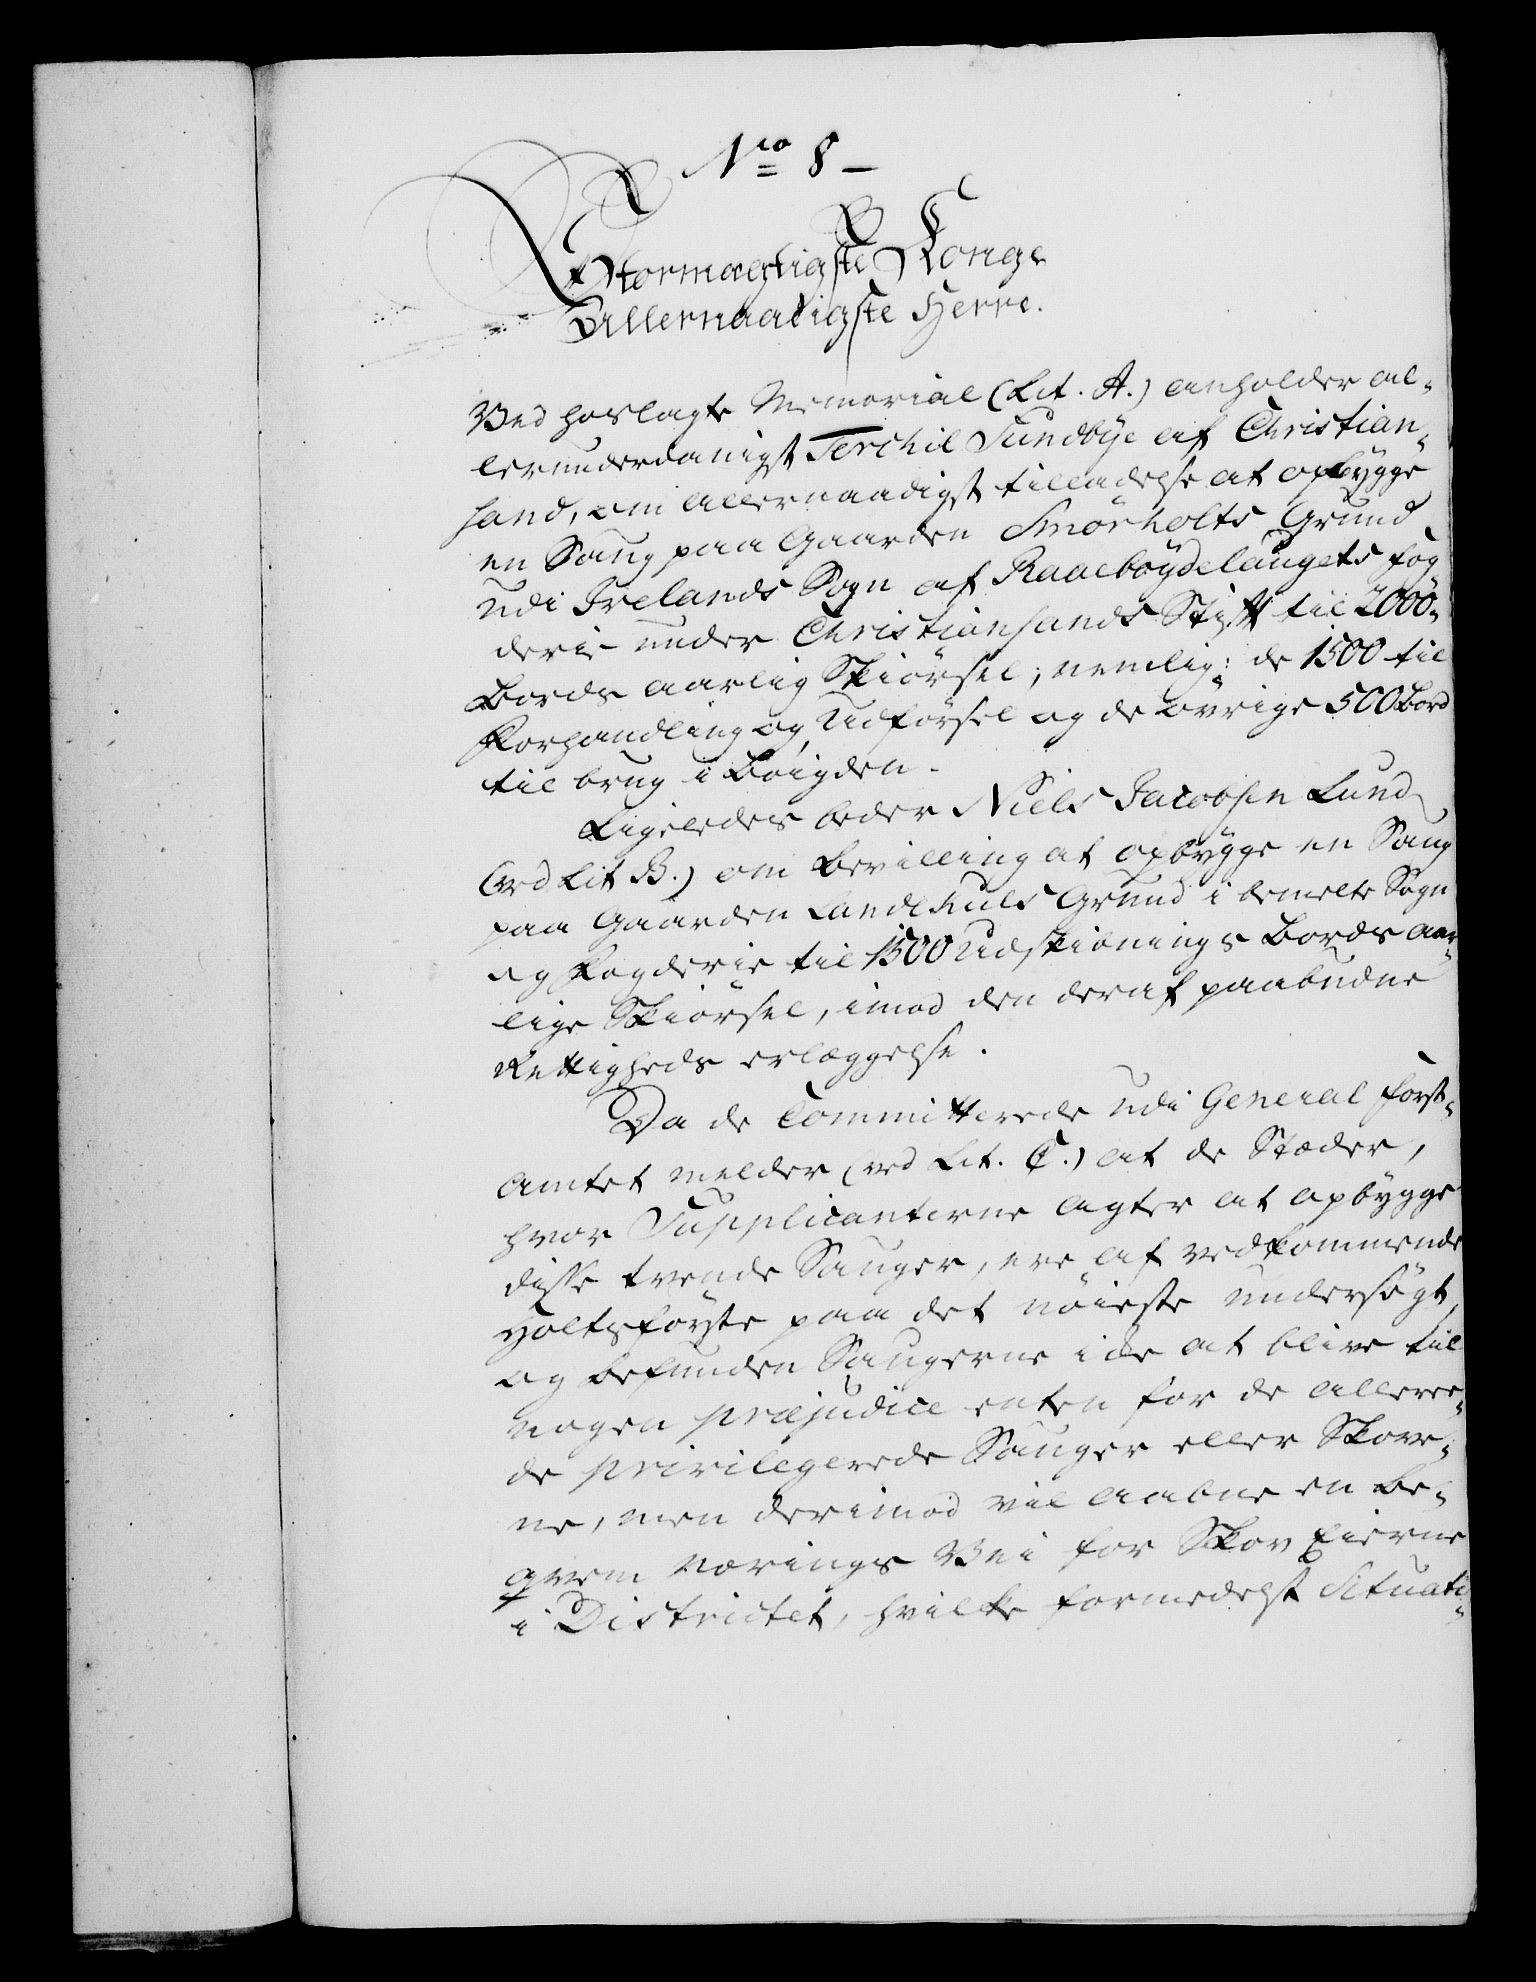 Nro 8 –
Stormægtigste Konge
Allernaadigste Herre.
Ved hoslagte Memorial (Lit. A.) anholder al-
lerunderdanigst Terchil Sundbye af Christian-
sand, om allernaadigst tilladelse at opbygge
en Saug paa Gaarden Smörholts Grund
udi Irelands Sogn af Raaebøydelaugets fog-
derie under Christiansands Stift til 2000-
Bords aarlig Skiörsel; nemlig: de 1500 til
Forhandling og Udförsel og de övrige 500 Bord
til brug i Böigden.
Ligeledes beder Niels Jacobsen Lund
(ved Lit B.) om Bevilling at opbygge en Saug
paa Gaarden Landehuls Grund i bemelte Sogn
og Fogderie til 1500 Udskibnings Bords aar-
lige Skiörsel, imod den deraf paabudne
Rettigheds erlæggelse.
Da de Committerede udi General Forst-
Amtet melder (ved Lit. C.) at de Stæder,
hvor Supplicanterne agter at opbygge
disse tvende Sauger, ere af vedkommende
Holtsförste paa det nöieste undersögt,
og befunden Saugerne i de at blive til
nogen præjudice enten for de alleree-
de privilegerede Sauger eller Skove-
ne, men derimod vil aabne en be-
qvem Nærings Vei for Skov Eierne
i Districtet, hvilke formedelst Situati-